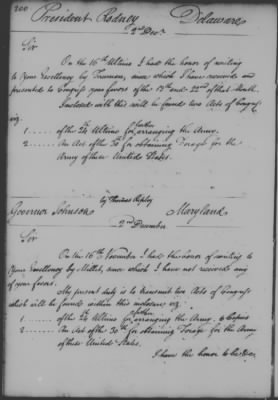 200
President Rodney Delaware
2d Decr.
Sir
On the 16th Ultimo I had the honor of writing
to Your Excellency by Freeman, since which I have received and
presented to Congress your favors of the 13th and 22nd of that Month.
Inclosed with this will be found two Acts of Congress
viz.
1 ..... of the 24 Ultimo farther for arranging the Army.
2 ..... An Act of the 30th for obtaining Forage for the
Army of these United States.
by Thomas Ripley
Governor Johnson Maryland
2nd December
Sir
On the 16th November I had the honor of writing to
Your Excellency by Millet, since which I have not received any
of your favors.
My present duty is to transmit two Acts of Congress
which will be found within this inclosure viz.
1 ..... of the 24 Ultimo farther for arranging the Army. 6 Copies
2 ..... An Act of the 30th for obtaining Forage for the Army
of these United States.
I have the honor to be &c.